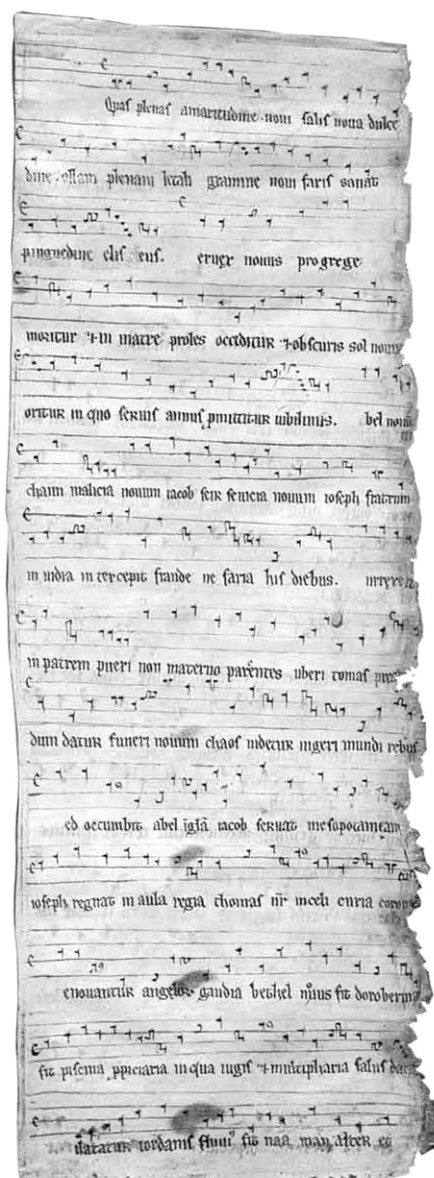 Quas plenas amaritudine noui salis noua dulce
dine ollam plenam letali gramine noui faris sanat
pinguedine elis eus. eruex nouus pro grege
moritur in matre proles occiditur obscuris sol nouus
oritur in quo seruis annus mittitur iubileus. bel nouum
chaim malicia nouum iacob seir seuicia nouum ioseph fratrum
in uidia in tercepit fraude ne faria his diebus.
in patrem pueri non materno parentes uberi tomas
dum datur funeri nouum chaos indetur ingeri mundi rebus
ed occumbit abel iacob seruat mesopotamiam
ioseph regnat in aula regia thomas celi curia corone
enouantur angelor gaudia bethel fit doroberina
fit piscina ppiciaria in qua iugis multipharia salus data
ilatatur iordanis fluui fit naa man alter